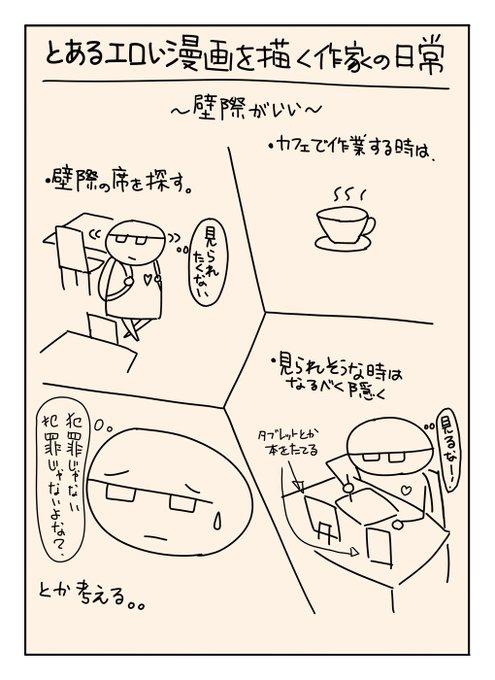 とあるエロい漫画を描く作家の日常
～壁際がいい～
・カフェで作業する時は、
・壁際の席を探す。
見られ
たくない
・見られそうな時は
なるべく隠く
タブレットとか
本をたてる
見るなー！
犯罪じゃない
犯罪じゃないよな？
とか考える。。